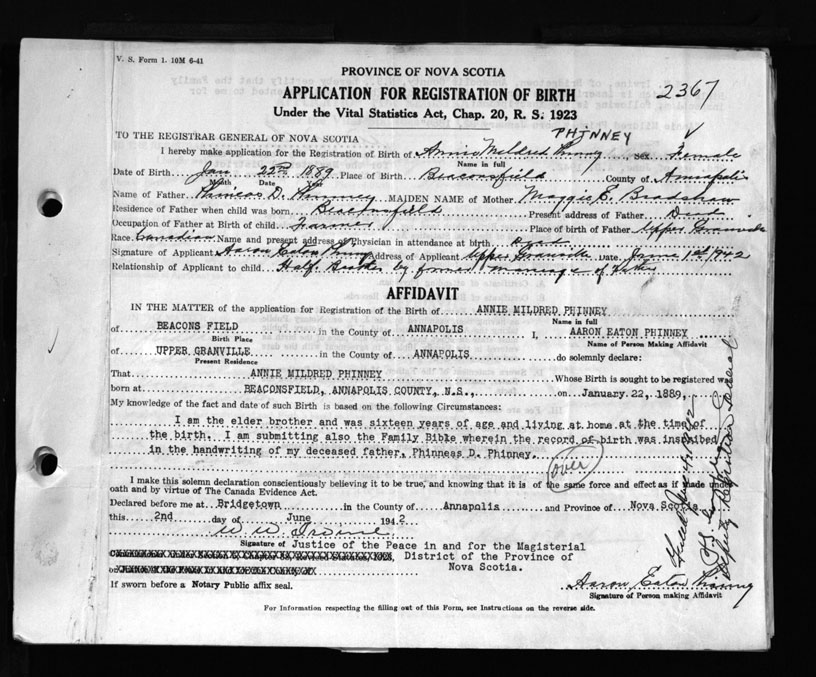 V. S. Form 1. 10M 6-41
PROVINCE OF NOVA SCOTIA
APPLICATION FOR REGISTRATION OF BIRTH
2367
Under the Vital Statistics Act, Chap. 20, R. S. 1923
PHINNEY
TO THE REGISTRAR GENERAL OF NOVA SCOTIA
I hereby make application for the Registration of Birth of Annie Mildred Phinney Sex Female
Name in full
Date of Birth Jan 22nd 1889 Place of Birth Beaconsfield County of Annapolis
Month Date Year
Name of Father Phineas D. Phinney MAIDEN NAME of Mother Maggie E. Bradshaw
Residence of Father when child was born Beaconsfield Present address of Father Dead
Occupation of Father at Birth of child Farmer Place of birth of Father Upper Granville
Race Canadian Name and present address of Physician in attendance at birth Dead
Signature of Applicant Aaron Eaton Phinney Address of Applicant Upper Granville Date June 1st 1942
Relationship of Applicant to child Half Brother by former marriage of Father
AFFIDAVIT
IN THE MATTER of the application for Registration of the Birth of ANNIE MILDRED PHINNEY
Name in full
of BEACONS FIELD in the County of ANNAPOLIS I, AARON EATON PHINNEY
Birth Place Name of Person Making Affidavit
of UPPER GRANVILLE in the County of ANNAPOLIS do solemnly declare:
Present Residence
That ANNIE MILDRED PHINNEY Whose Birth is sought to be registered was
born at BEACONSFIELD, ANNAPOLIS COUNTY, N.S., on January 22, 1889,
My knowledge of the fact and date of such Birth is based on the following Circumstances:
I am the elder brother and was sixteen years of age and living at home at the time of
the birth. I am submitting also the Family Bible wherein the record of birth was inscribed
in the handwriting of my deceased father, Phinneas D. Phinney.
over
I make this solemn declaration conscientiously believing it to be true, and knowing that it is of the same force and effect as if made under
oath and by virtue of The Canada Evidence Act.
Declared before me at Bridgetown in the County of Annapolis and Province of Nova Scotia
this 2nd day of June 1942
W W Irvine
Signature of Justice of the Peace in and for the Magisterial
District of the Province of
Nova Scotia.
If sworn before a Notary Public affix seal.
Aaron Eaton Phinney
Signature of Person making Affidavit
For Information respecting the filling out of this Form, see Instructions on the reverse side.
Deputy Registrar General